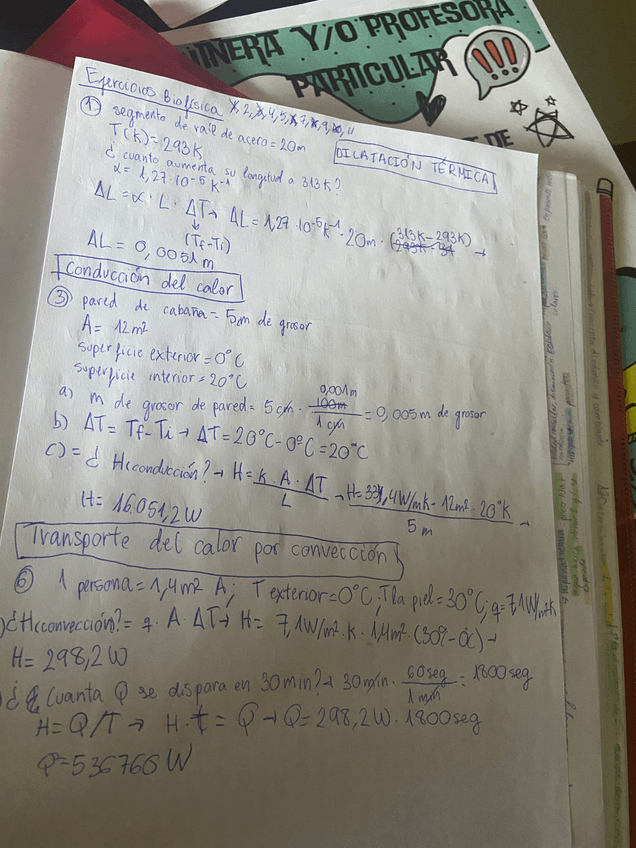 INERA Y/O PROFESORA
PARTICULAR
DE
Ejercicios Biofísica 1, 2, 3, 4, 5, 6, 7, 8, 9, 10, 11
① segmento de raíl de acero = 20m
T(K) = 293K
DILATACIÓN TÉRMICA
¿ cuanto aumenta su longitud a 313K?
α = 1,27·10⁻⁵ K⁻¹
ΔL = α · L · ΔT → ΔL = 1,27 · 10⁻⁵ K⁻¹ · 20m · (313K - 293K) →
(Tf-Ti)
ΔL = 0,0051 m
Conducción del calor
③ pared de cabaña = 5m de grosor
A = 12m²
superficie exterior = 0°C
superficie interior = 20°C
a) m de grosor de pared = 5 cm · 0,001m / 1 cm = 0,005m de grosor
b) ΔT = Tf - Ti → ΔT = 20°C - 0°C = 20°C
c) = ¿ H(conducción? → H = K · A · ΔT / L → H = 334,4W/mK · 12m² · 20°K / 5 m →
H = 16.051,2 W
Transporte del calor por convección
⑥ 1 persona = 1,4m² A; T exterior = 0°C; T la piel = 30°C; q = 7,1W/m²K
) ¿H(convección? = q · A · ΔT → H = 7,1W/m²·K · 1,4m² · (30º - 0C) →
H = 298,2 W
¿ Cuanta Q se dispara en 30min? → 30min · 60seg / 1min = 1800seg
H = Q/T → H · t = Q → Q = 298,2W · 1800seg
Q = 536760 W